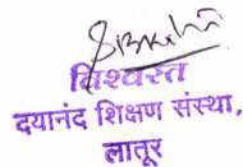 विश्वस्त
दयानंद शिक्षण संस्था,
लातूर